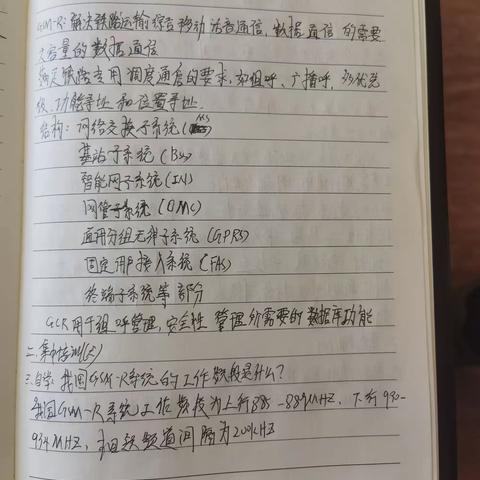 GSM-R: 解决铁路运输综合移动话音通信, 数据通信的需要
大容量的数据通信
满足铁路专用调度通信的要求, 如组呼, 广播呼, 多优先
级, 功能寻址和位置寻址.
结构: 网络交换子系统 (
基站子系统 (BSS)
智能网子系统 (IN)
网管子系统 (OMC)
通用分组无线子系统 (GPRS)
固定用户接入系统 (FAS)
终端子系统等部分
GCR用于组呼管理, 安全性管理所需要的数据库功能
二. 集中培训(六)
三. 自学: 我国GSM-R系统的工作频段是什么?
我国GSM-R系统工作频段为上行885-889MHZ, 下行930-
934MHZ, 频道间隔为200KHZ